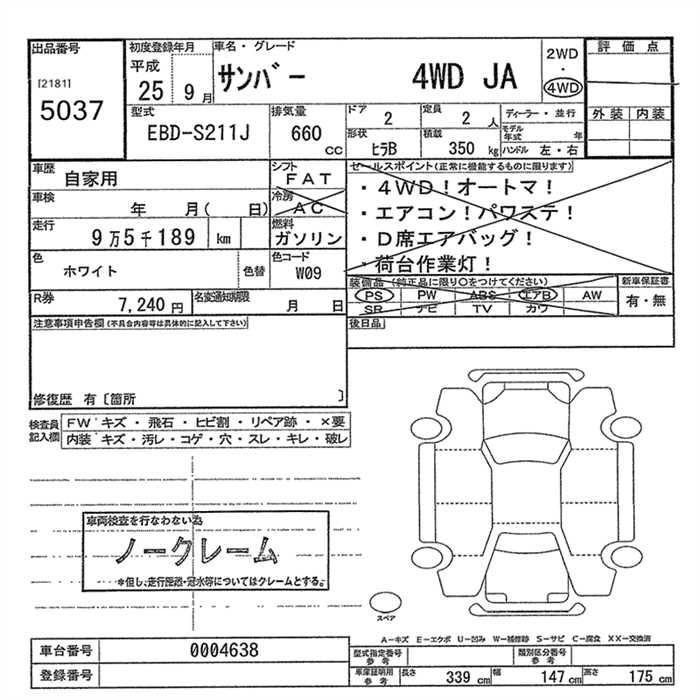 出品番号
[2181]
5037
初度登録年月
平成
25 9月
車名・グレード
サンバー 4WD JA
2WD
・
4WD
評価点
外装 内装
型式
EBD-S211J
排気量
660
cc
ドア
2
定員
2 人
形状
ﾋﾗB
積載
350 kg
ディーラー・並行
モデル年式 年
ハンドル 左・右
車歴
自家用
シフト
FAT
車検
年 月( 日)
冷房
AC
走行
9万5千189 km
燃料
ガソリン
色
ホワイト
色替
色コード
W09
R券
7,240 円
名変通知期限
月 日
セールスポイント(正常に機能するものに限ります)
・4WD!オートマ!
・エアコン!パワステ!
・D席エアバッグ!
・荷台作業灯!
装備品 (純正品に限り○をつけてください)
PS PW ABS エアB AW
SR ナビ TV カワ
新車保証書
有・無
後日品
注意事項申告欄 (不具合内容等は具体的に記入して下さい)
修復歴 有〔箇所 〕
検査員記入欄
FW キズ ・ 飛石 ・ ヒビ割 ・ リペア跡 ・ ×要
内装 キズ ・ 汚レ ・ コゲ ・ 穴 ・ スレ ・ キレ ・ 破レ
車両検査を行なわない為
ノークレーム
*但し、走行距離・冠水等についてはクレームとする。
スペア
A-キズ E-エクボ U-凹み W-補修跡 S-サビ C-腐食 XX-交換済
車台番号 0004638
登録番号
型式指定番号
参考
類別区分番号
参考
車庫証明用
参考
長さ 339 cm 幅 147 cm 高さ 175 cm